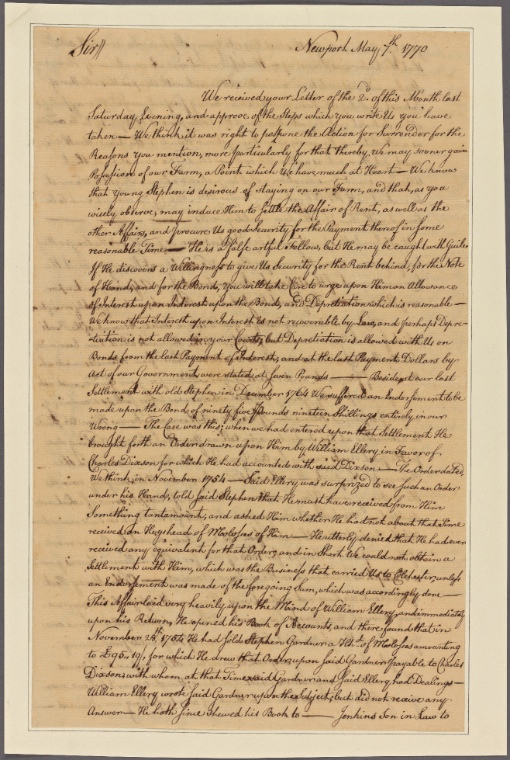 Sir//
Newport May 7th. 1770
We received your Letter of the 2d. of this Month last
Saturday Evening, and approve of the Steps which you write Us you have
taken — We think it was right to postpone the Action for Surrender for the
Reasons You mention, more particularly for that thereby, We may sooner gain
Possession of our Farm, a Point which We have much at Heart — We know
that young Stephen is desirous of staying on our Farm, and that, as you
wisely observe, may induce Him to settle the Affair of Rent, as well as the
other Affairs, and procure Us good Security for the Payment thereof in some
reasonable Time — He is a false artful Fellow, but He may be caught with Guile
If He discovers a Willingness to give Us Security for the Rent behind, for the Note
of Hand, and for the Bond, You will take Care to urge upon Him an Allowance
of Interest upon Interest upon the Bond, and Depretiation which is reasonable —
We know that Interest upon Interest is not recoverable by Law, and perhaps Depre-
tiation is not allowed in your Courts, but Depretiation is allowed with Us on
Bonds from the last Payment of Interest, and at the last Payment Dollars by
Act of our Government were stated at seven Pounds — Besides at our last
Settlement with old Stephen in December 1764 We suffered an Endorsement to be
made upon the Bond of ninety five Pounds nineteen Shillings entirely in our
Wrong — The Case was this; when we had entered upon that Settlement He
brought forth an Order drawn upon Him by William Ellery in Favor of
Charles Dixson for which He had accounted with said Dixson — The Order dated
We think in November 1754 — Said Ellery was surprized to see such an Order
under his Hand, told said Stephen that He must have received from Him
Something tentamount, and asked Him whether He had not about that Time
received an Hogshead of Molosses of Him — He utterly denied that He had ever
received any equivalent for that Order, and in short We could not obtain a
Settlement with Him, which was the Business that carried Us to Colchester, unless
an Endorsement was made of the foregoing Sum, which was accordingly done —
This Affair laid very heavily upon the Mind of William Ellery, and immediately
upon his Return, He opened his Book of Accounts, and there found that in
November 25th. 1754 He had sold Stephen Gardner a Hhd. of Molosses amounting
to £95,,19/, for which He drew that Order upon said Gardner payable to Charles
Dixson with whom at that Time said Gardner and said Ellery had Dealings —
William Ellery wrote said Gardner upon the Subject; but did not receive any
Answer — He hath since shewed his Book to — Jenkins Son in Law to